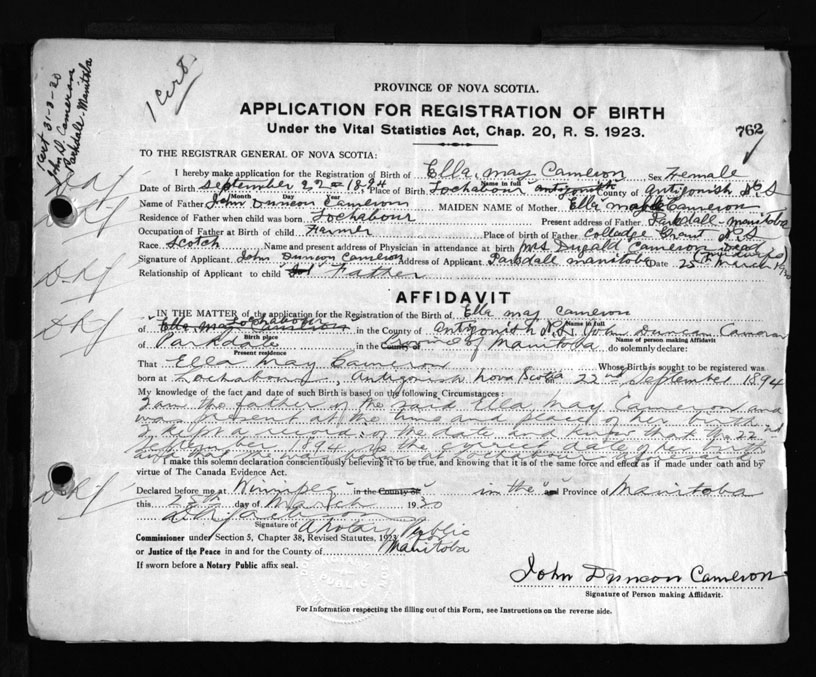 1 Cert 31-3-20
John D. Cameron
Parkdale Manitoba
1 Cert.
PROVINCE OF NOVA SCOTIA.
APPLICATION FOR REGISTRATION OF BIRTH
Under the Vital Statistics Act, Chap. 20, R. S. 1923.
762
TO THE REGISTRAR GENERAL OF NOVA SCOTIA:
I hereby make application for the Registration of Birth of Ella May Cameron Sex Female
Name in full
Date of Birth September 22nd 1894 Place of Birth Lochabour Antigonish County of Antigonish N.S
Month Day Year
Name of Father John Duncan Cameron MAIDEN NAME of Mother Ella Cameron
Residence of Father when child was born Lochabour Present address of Father Parkdale Manitoba
Occupation of Father at Birth of child Farmer Place of birth of Father Colledge Grant N.S
Race Scotch Name and present address of Physician in attendance at birth Mrs Dugald Cameron Dead
Signature of Applicant John Duncan Cameron Address of Applicant Parkdale Manitoba Date 25th March 1930
Relationship of Applicant to child Father
AFFIDAVIT
IN THE MATTER of the application for the Registration of Birth of Ella May Cameron
Name in full
of Ella May Cameron Lochabour in the County of Antigonish N.S. I John Duncan Cameron
Birth place Name of person making Affidavit
of Parkdale in the County of Province of Manitoba do solemnly declare:
Present residence
That Ella May Cameron Whose Birth is sought to be registered was
born at Lochabour, Antigonish Nova Scotia on 22nd September 1894
My knowledge of the fact and date of such Birth is based on the following Circumstances:
I am the father of the said Ella May Cameron and
was present at the time and place of her birth
I kept a record of the date and know that the 22nd
September 1894 is the correct date of birth
and that she was born at Lochabour
I make this solemn declaration conscientiously believing it to be true, and knowing that it is of the same force and effect as if made under oath and by
virtue of The Canada Evidence Act.
Declared before me at Winnipeg in the County of in the and Province of Manitoba
this 25th day of March 1930
Signature of A Notary Public
Commissioner under Section 5, Chapter 38, Revised Statutes, 1923
or Justice of the Peace in and for the County of Manitoba
If sworn before a Notary Public affix seal.
John Duncan Cameron
Signature of Person making Affidavit.
For Information respecting the filling out of this Form, see Instructions on the reverse side.